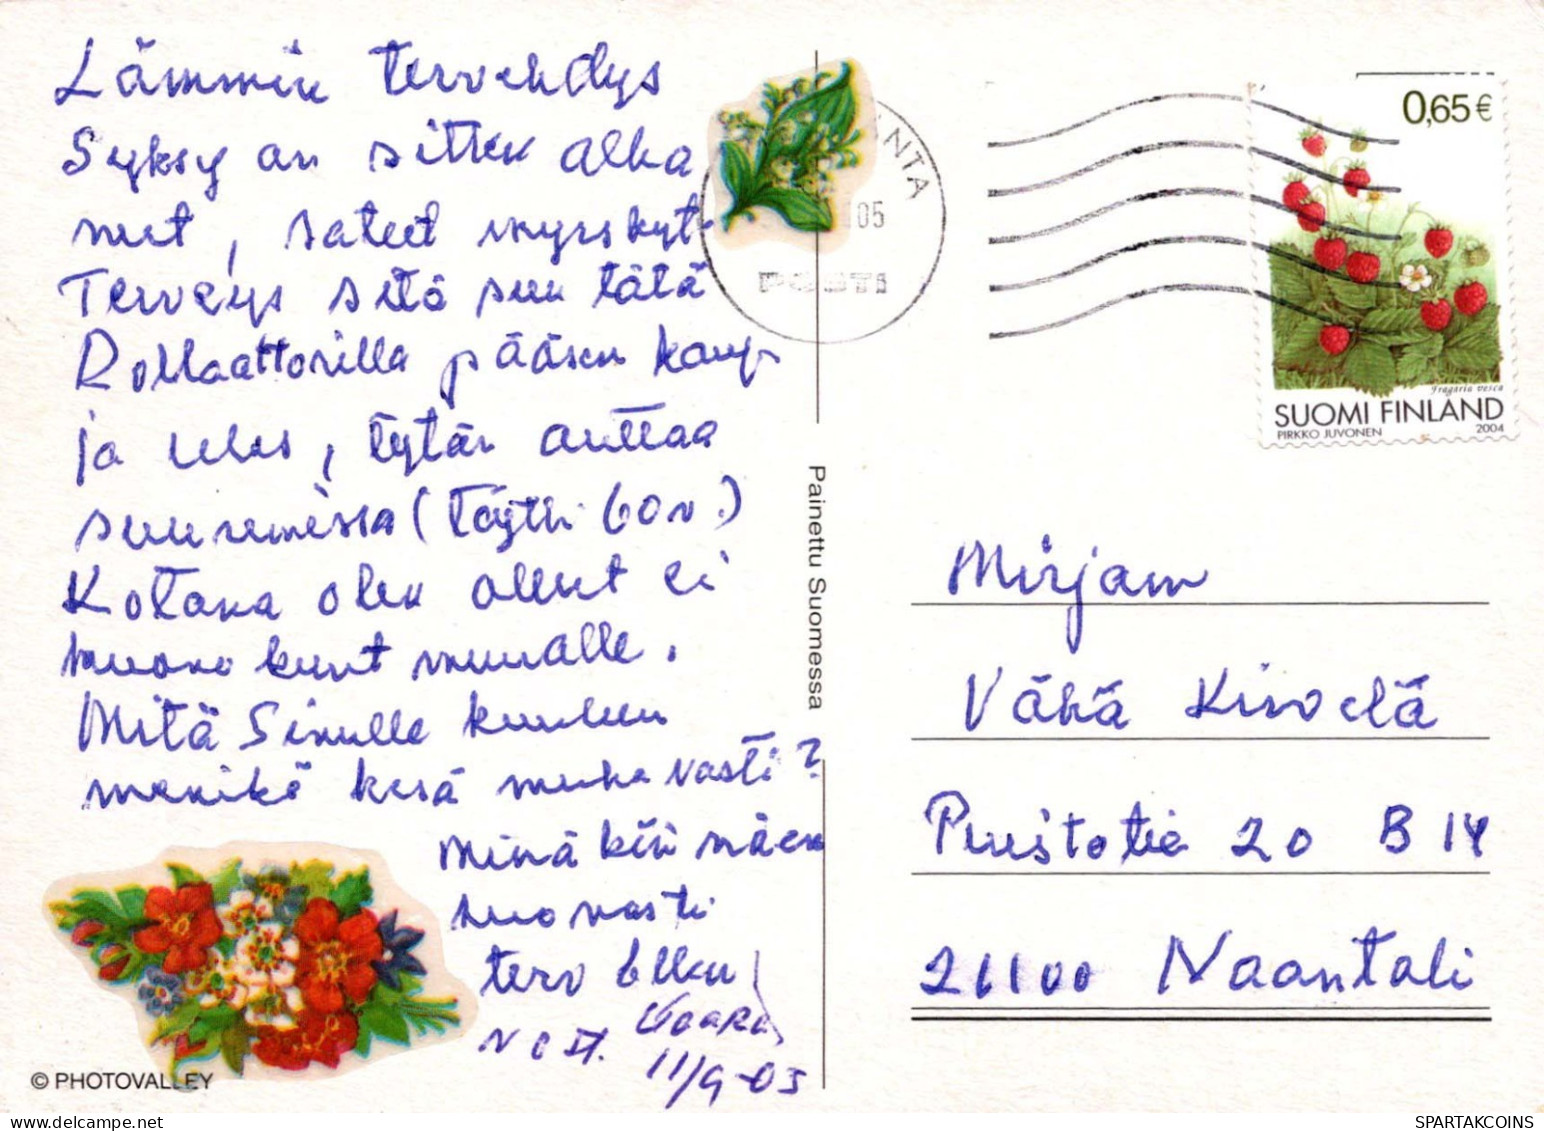 Lämmin tervehdys
Syksy on sitten alka
nut, sateet myrskyt.
Terveys sitä sun tätä
Rollaattorilla pääsen kaup-
ja ulos, tytär auttaa
suuremissa (täytti 60v.)
Kotona olen ollut ei
kuunt muualle.
Mitä Sinulle kuuluu
menikö kesä mukavasti?
Minä kiri
huonosti
terv
11/9-05
© PHOTOVALLEY
Painettu Suomessa
NTA
05
POSTI
0,65€
Fragaria vesca
SUOMI FINLAND
PIRKKO JUVONEN 2004
Mirjam
Vähä Kinvelä
Puistotie 20 B 14
21100 Naantali
SPARTAKCOINS